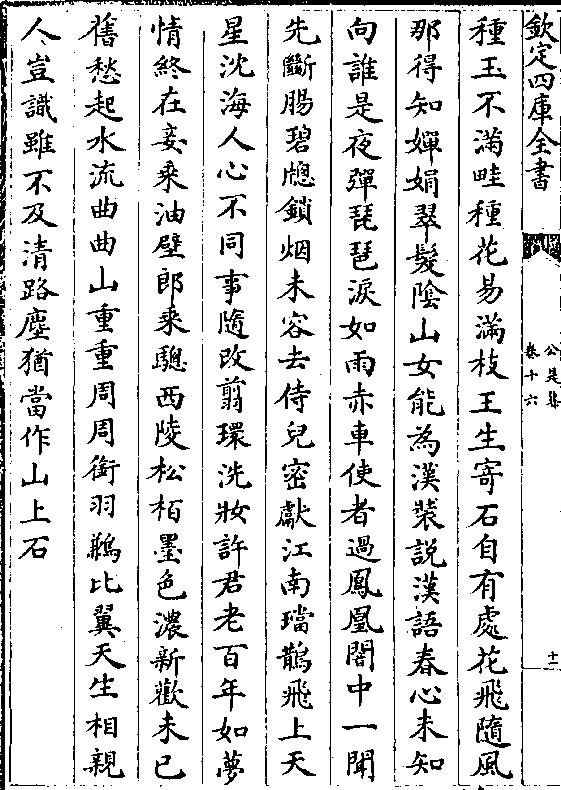 欽定四庫全書
公是集
卷十六
十二
種玉不滿畦種花易滿枝王生寄石自有處花飛隨風
那得知嬋娟翠髮陰山女能為漢裝説漢語春心未知
向誰是夜彈琵琶淚如雨赤車使者過鳳凰閣中一聞
先斷腸碧牕鎖烟未容去侍兒密獻江南璫鵲飛上天
星沈海人心不同事隨改翦環洗妝許君老百年如夢
情終在妾乘油壁郎乘驄西陵松栢墨色濃新歡未已
舊愁起水流曲曲山重重周周銜羽鶼比翼天生相親
人豈識雖不及清路塵猶當作山上石